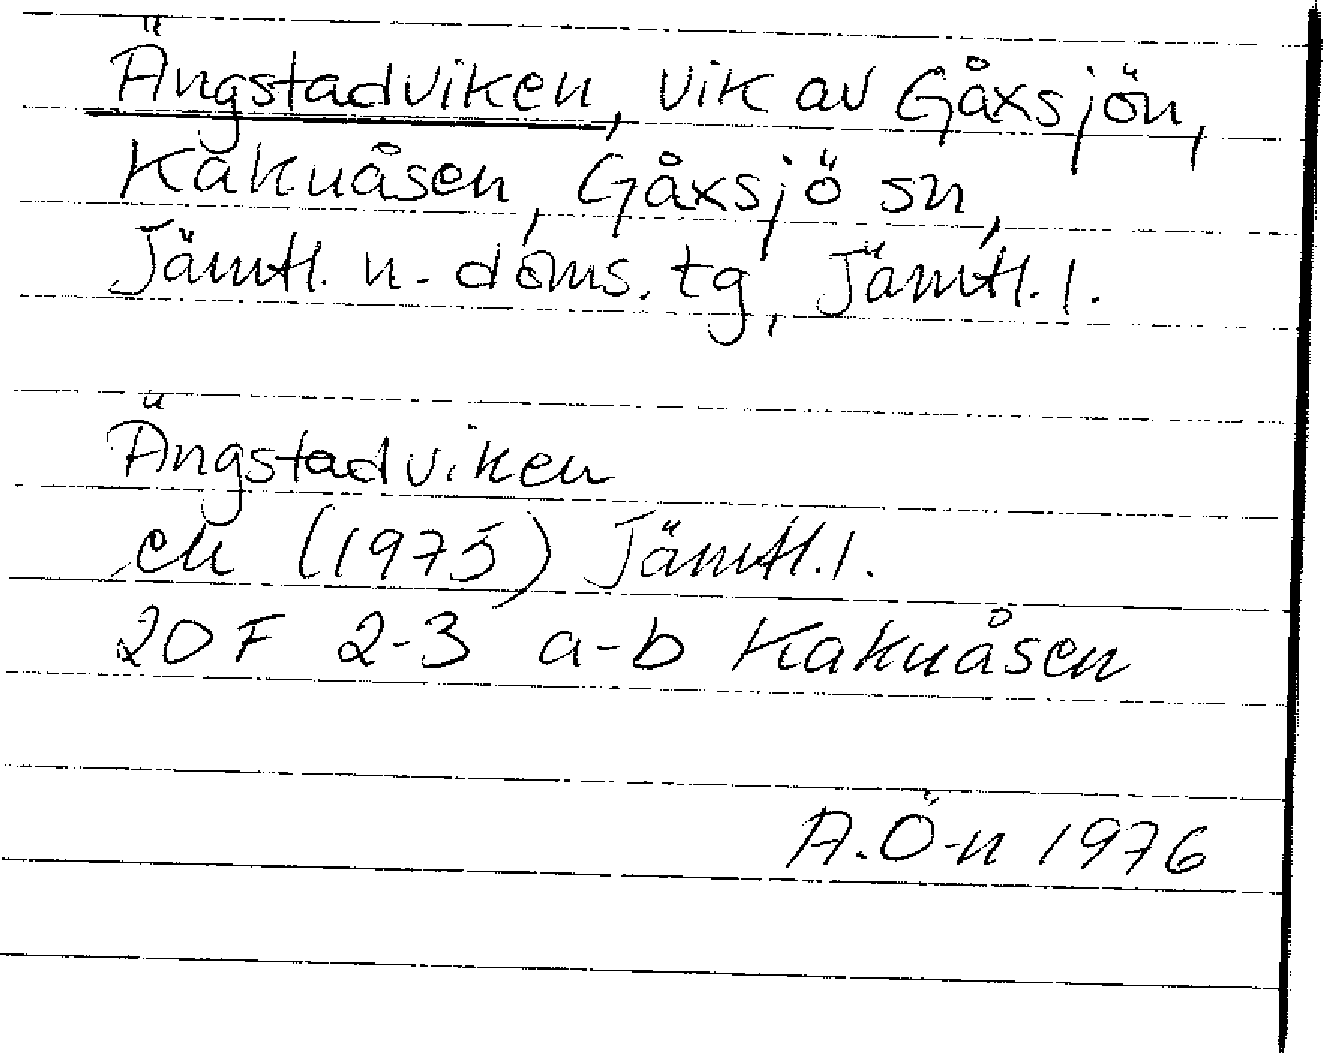 Ängstadviken, vik av Gåxsjön,
Kakuåsen, Gåxsjö sn,
Jämtl. n. doms. tg, Jämtl. l.
Ängstadviken
ek (1975) Jämtl. l.
20F 2-3 a-b Kakuåsen
A.Ö-n 1976